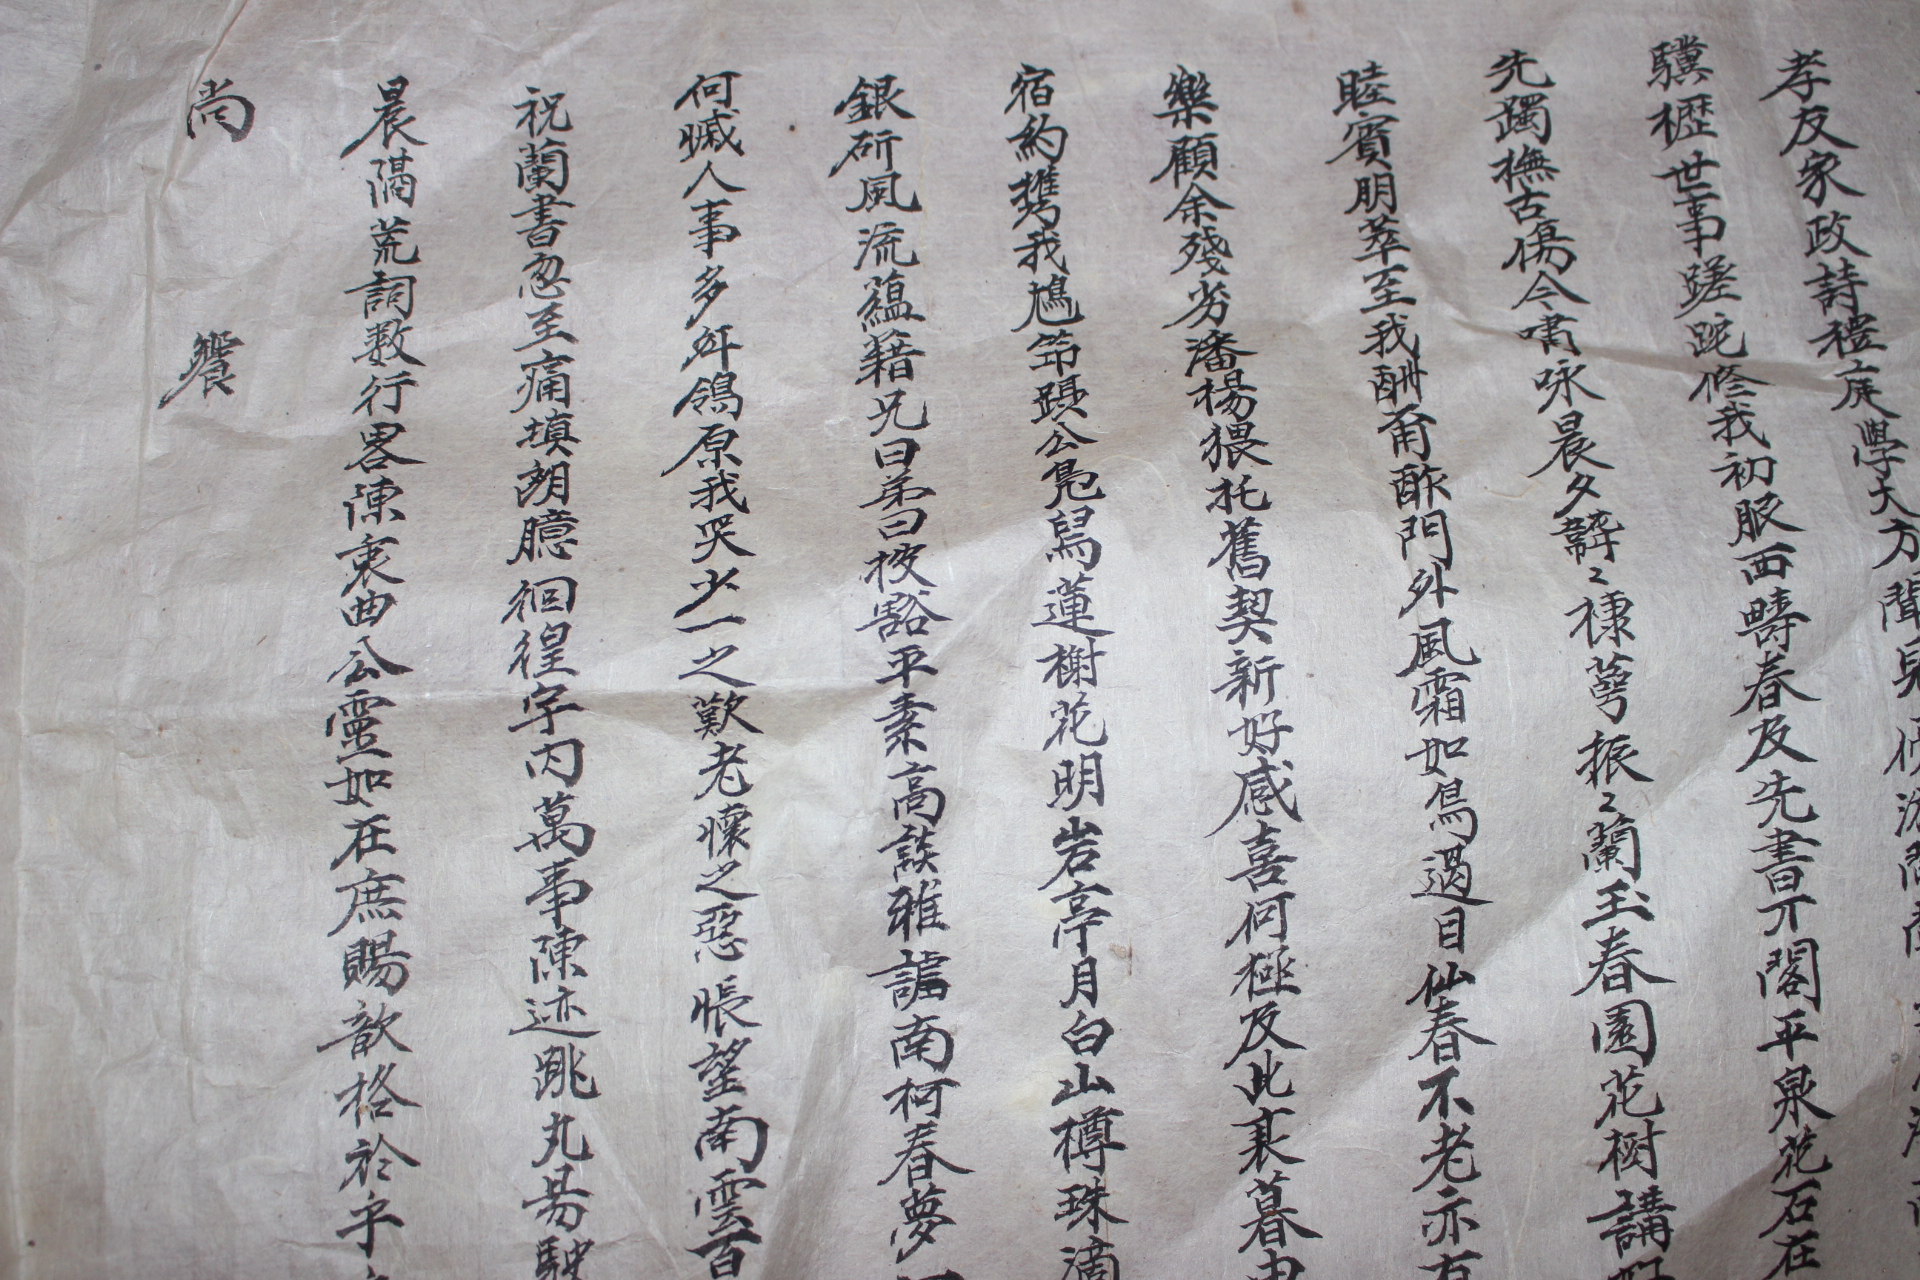 孝友家政詩禮庭學大方聞見
驥櫪世事蹉跎修我初服西疇春及先書开閣平泉花石在
先躅撫古傷今嘯咏晨夕韡〻棣萼振〻蘭玉春園花樹講
睦賓朋萃至我酬甭酢門外風霜如鳥過目仙春不老亦有
樂顧余殘劣潘楊猥托舊契新好感喜何極及此衰暮
宿約携我鳩筇躡公鳧舃蓮榭花明岩亭月白山樽珠滴
銀斫風流蘊藉兄曰弟曰披豁平素高談雅謔南柯春夢
何慽人事多舛鴒原我哭少一之歎老懷之惡悵望南雲百
祝蘭書忽至痛塡胡臆徊徨字內萬事陳迹跳丸昜駛
晨隔荒詞数行畧陳衷曲公靈如在庶賜歆格於乎
尚 饗